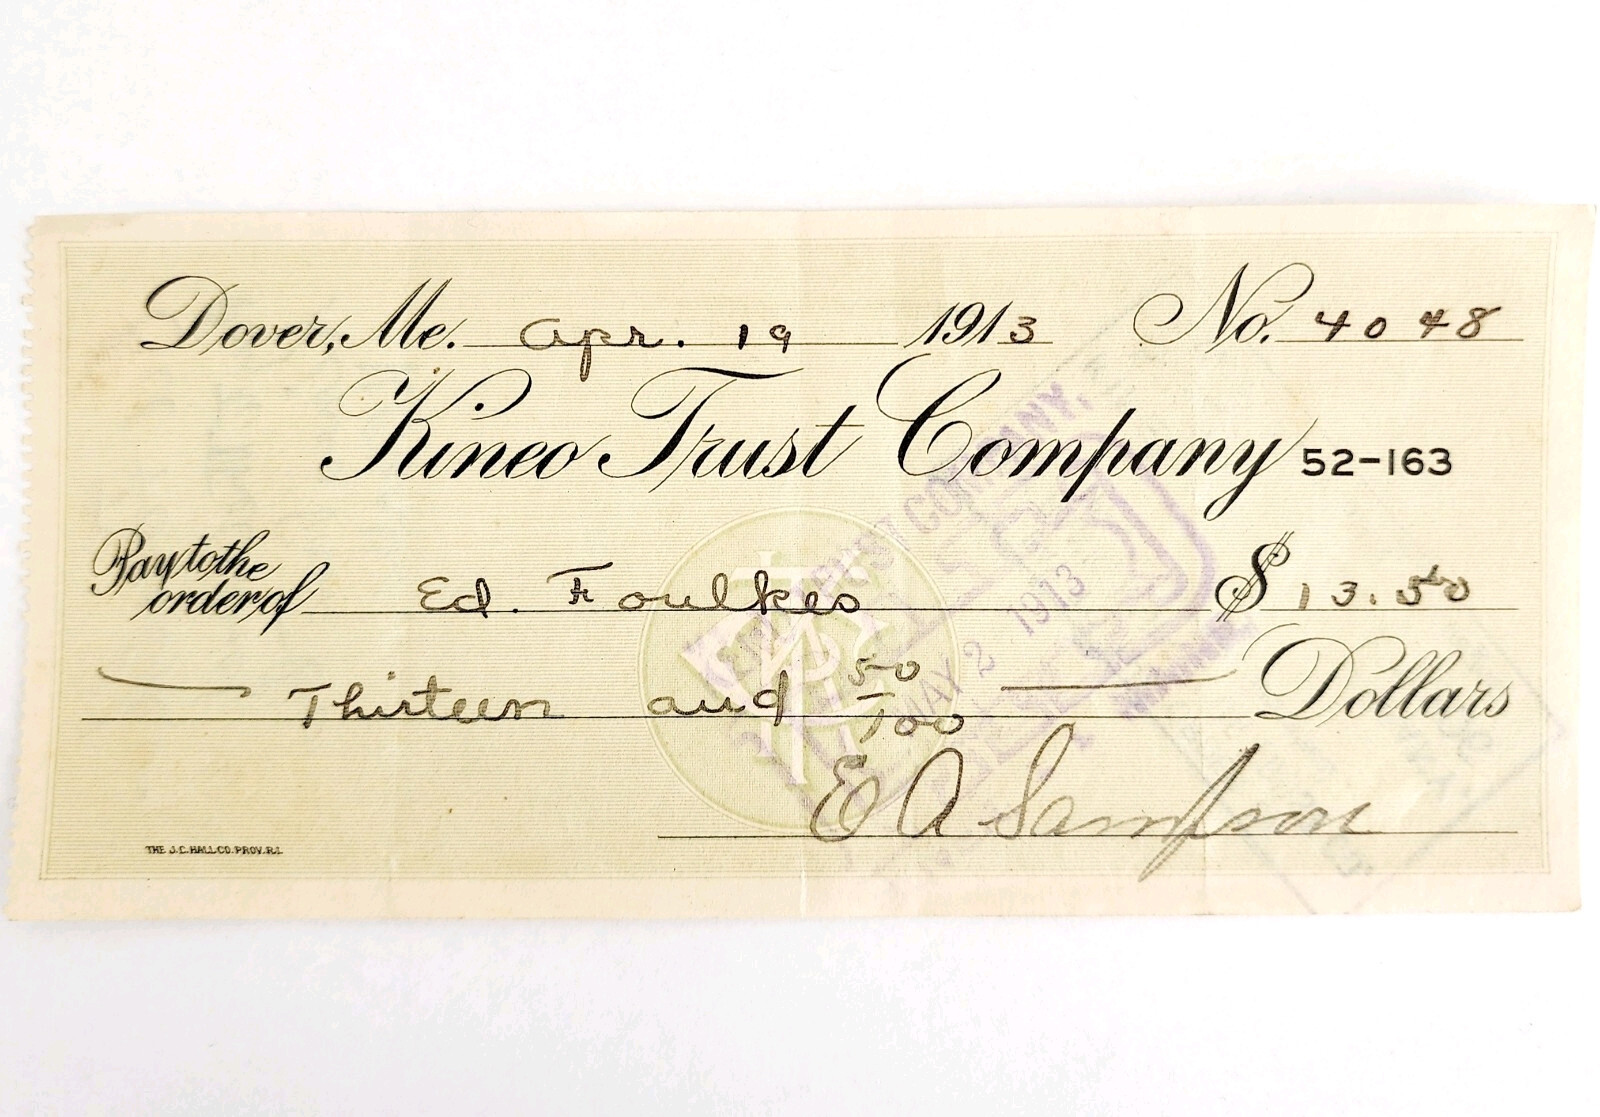 Dover, Me. Apr. 19 1913 No. 4048
Kineo Trust Company 52-163
Pay to the
order of Ed. Foulkes $ 13.50
Thirteen and 50/100 Dollars
E A Sampson
THE J.C. HALL CO. PROV. R.I.
TRUST COMPANY,
MAY 2 1913